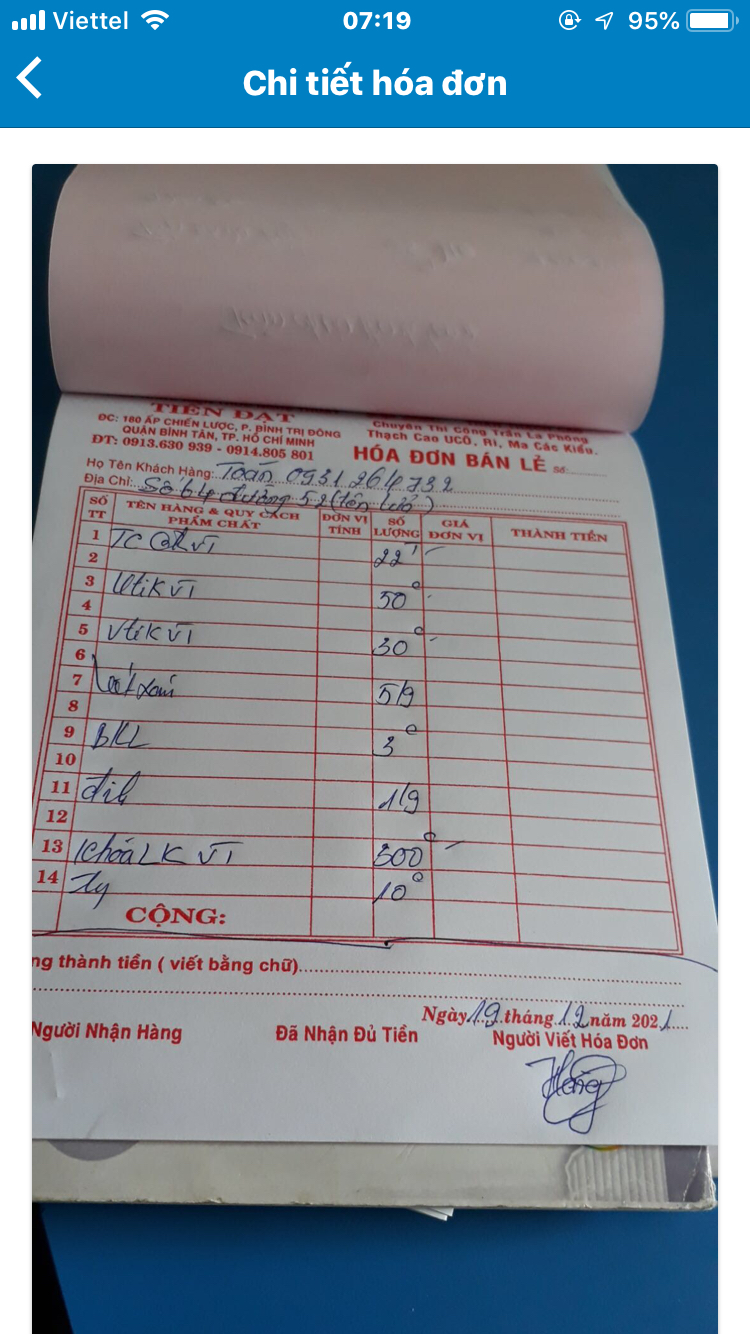 Viettel 07:19 95%
Chi tiết hóa đơn
TIẾN ĐẠT
ĐC: 180 ẤP CHIẾN LƯỢC, P. BÌNH TRỊ ĐÔNG
QUẬN BÌNH TÂN, TP. HỒ CHÍ MINH
ĐT: 0913.630 939 - 0914.805 801
Chuyên Thi Công Trần La Phông
Thạch Cao UCO, Ri, Ma Các Kiểu.
HÓA ĐƠN BÁN LẺ Số:
Họ Tên Khách Hàng: Toán 0931264732
Địa Chỉ: Số 64 đường 52 (tên lửa)
SỐ TT TÊN HÀNG & QUY CÁCH PHẨM CHẤT ĐƠN VỊ TÍNH SỐ LƯỢNG GIÁ ĐƠN VỊ THÀNH TIỀN
1 TC VT 22
2
3 VT 50
4
5 VtiK VT 30
6
7 5
8
9 BKL 3
10
11 đih 1
12
13 Khóa LK VT 300
14 Ty 10
CỘNG:
ng thành tiền ( viết bằng chữ)
Ngày 19 tháng 12 năm 2021
Người Nhận Hàng Đã Nhận Đủ Tiền Người Viết Hóa Đơn